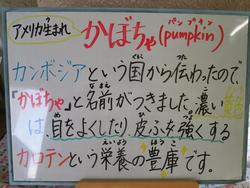 アメリカ生まれ
かぼちゃ(pumpkin)
パンプキン
カンボジアという国から伝わったので、
「かぼちゃ」と名前がつきました。濃い
は、目をよくしたり、皮ふを強くする
カロテンという栄養の豊庫です。